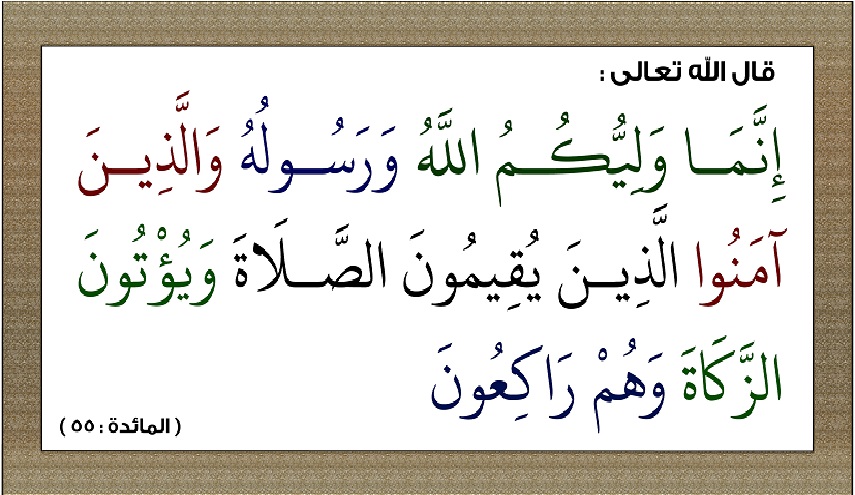 قال الله تعالى :
إِنَّمَـا وَلِيُّكُـمُ اللَّهُ وَرَسُـولُهُ وَالَّذِيـنَ
آمَنُوا الَّذِيـنَ يُقِيمُونَ الصَّـلَاةَ وَيُؤْتُونَ
الزَّكَاةَ وَهُمْ رَاكِعُونَ
( المائدة : ٥٥ )